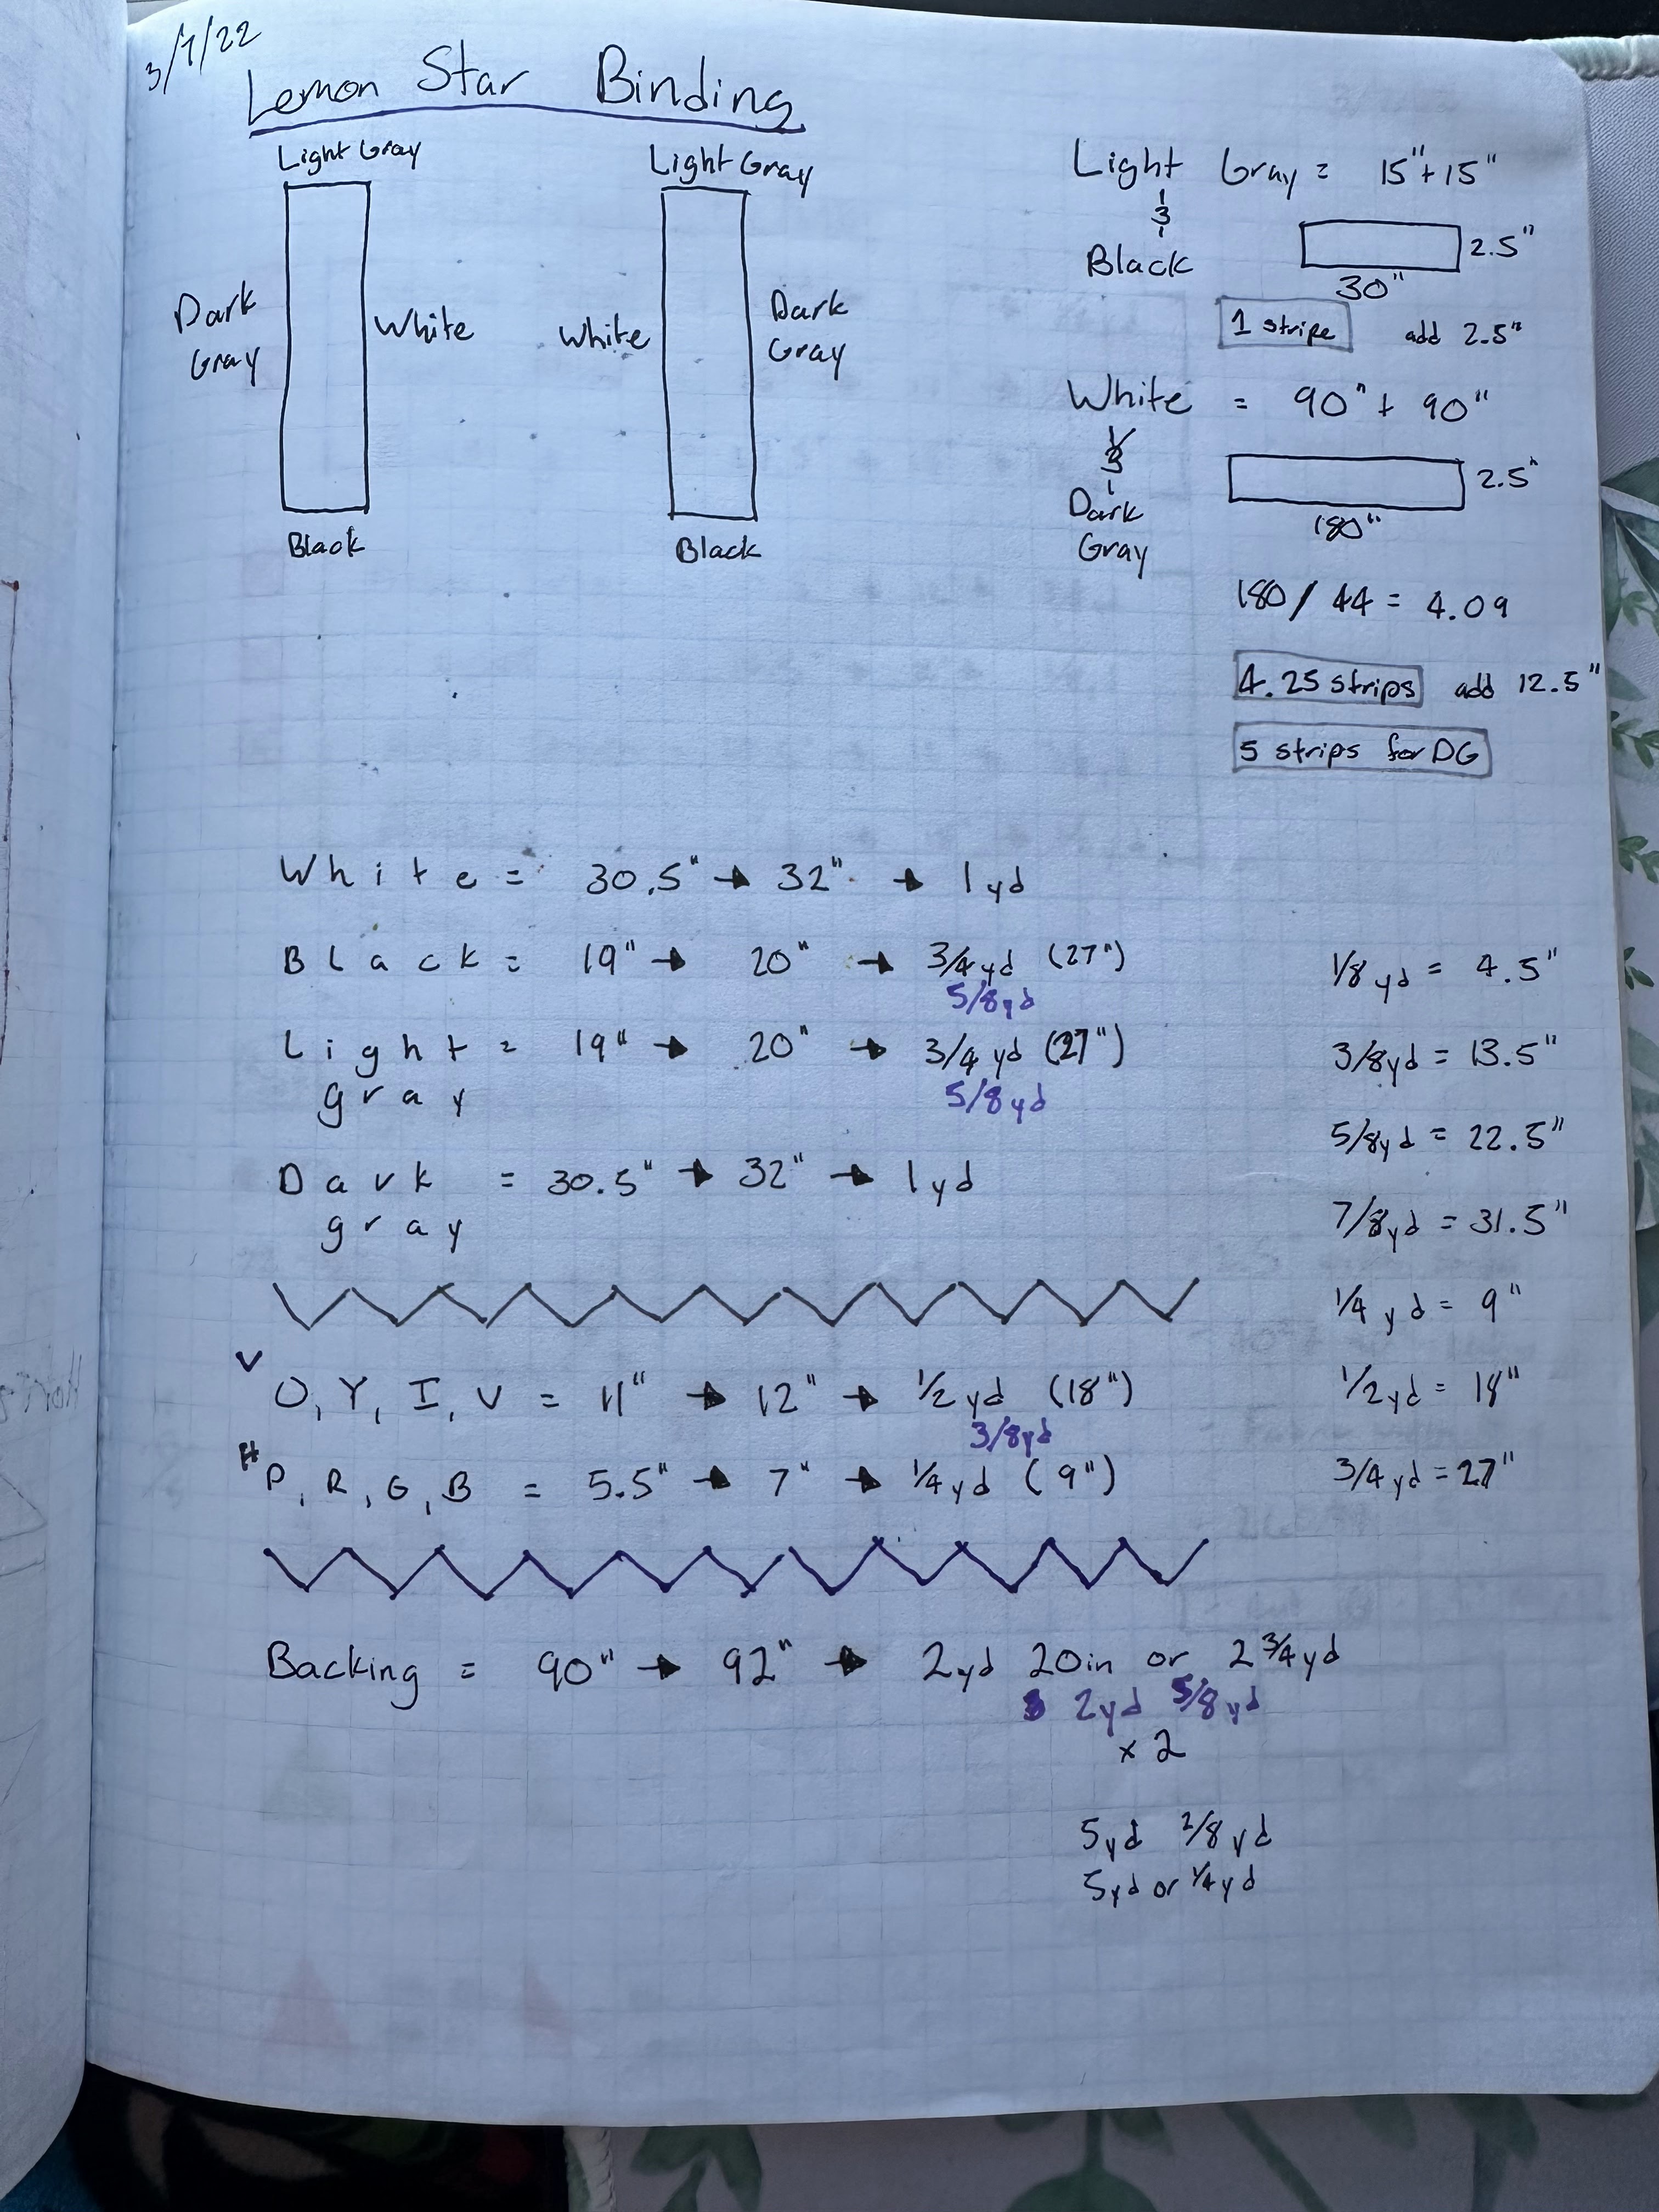 3/7/22
Lemon Star Binding
Light Gray
Dark Gray
White
Black
Light Gray
White
Dark Gray
Black
Light Gray = 15"+15"
&
Black
2.5"
30"
1 stripe add 2.5"
White = 90" + 90"
&
Dark Gray
2.5"
180"
180 / 44 = 4.09
4.25 strips add 12.5"
5 strips for DG
White = 30.5" → 32" → 1yd
Black = 19" → 20" → 3/4yd (27")
5/8yd
Light gray = 19" → 20" → 3/4 yd (27")
5/8yd
Dark gray = 30.5" → 32" → 1yd
1/8yd = 4.5"
3/8yd = 13.5"
5/8yd = 22.5"
7/8yd = 31.5"
1/4 yd = 9"
1/2yd = 18"
3/4yd = 27"
V
O, Y, I, V = 11" → 12" → 1/2 yd (18")
3/8yd
H
P, R, G, B = 5.5" → 7" → 1/4yd (9")
Backing = 90" → 92" → 2yd 20in or 2 3/4yd
2yd 5/8yd
x 2
5yd 2/8yd
5yd or 1/4yd